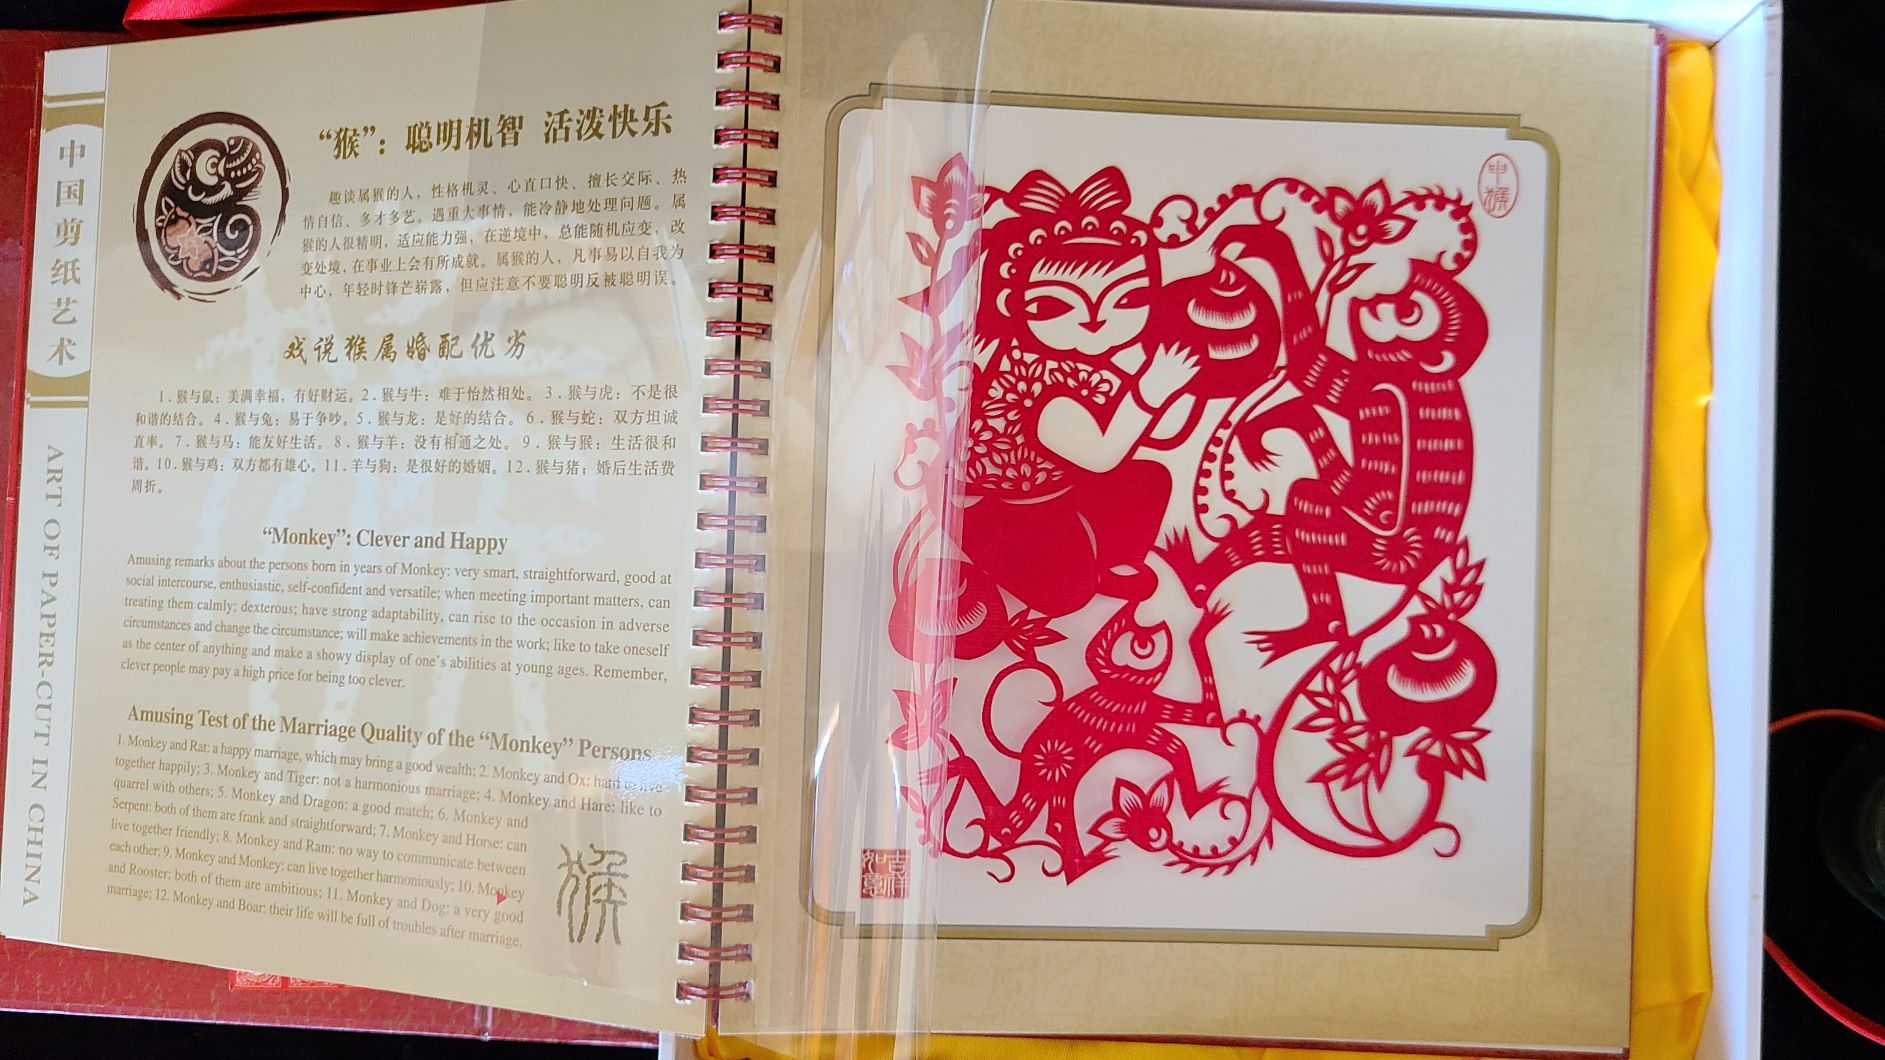 中国剪纸艺术
ART OF PAPER-CUT IN CHINA
“猴”：聪明机智 活泼快乐
趣谈属猴的人，性格机灵、心直口快、擅长交际、热
情自信、多才多艺。遇重大事情，能冷静地处理问题。属
猴的人很精明，适应能力强，在逆境中，总能随机应变，改
变处境，在事业上会有所成就。属猴的人，凡事易以自我为
中心，年轻时锋芒崭露，但应注意不要聪明反被聪明误。
戏说猴属婚配优劣
1．猴与鼠：美满幸福，有好财运。2．猴与牛：难于怡然相处。3．猴与虎：不是很
和谐的结合。4．猴与兔：易于争吵。5．猴与龙：是好的结合。6．猴与蛇：双方坦诚
直率。7．猴与马：能友好生活。8．猴与羊：没有相通之处。9．猴与猴：生活很和
谐。10．猴与鸡：双方都有雄心。11．羊与狗：是很好的婚姻。12．猴与猪：婚后生活费
周折。
“Monkey”: Clever and Happy
Amusing remarks about the persons born in years of Monkey: very smart, straightforward, good at
social intercourse, enthusiastic, self-confident and versatile; when meeting important matters, can
treating them calmly; dexterous; have strong adaptability, can rise to the occasion in adverse
circumstances and change the circumstance; will make achievements in the work; like to take oneself
as the center of anything and make a showy display of one’s abilities at young ages. Remember,
clever people may pay a high price for being too clever.
Amusing Test of the Marriage Quality of the “Monkey” Persons
1. Monkey and Rat: a happy marriage, which may bring a good wealth; 2. Monkey and Ox: hard to live
together happily; 3. Monkey and Tiger: not a harmonious marriage; 4. Monkey and Hare: like to
quarrel with others; 5. Monkey and Dragon: a good match; 6. Monkey and
Serpent: both of them are frank and straightforward; 7. Monkey and Horse: can
live together friendly; 8. Monkey and Ram: no way to communicate between
each other; 9. Monkey and Monkey: can live together harmoniously; 10. Monkey
and Rooster: both of them are ambitious; 11. Monkey and Dog: a very good
marriage; 12. Monkey and Boar: their life will be full of troubles after marriage.
猴
申猴
吉祥如意